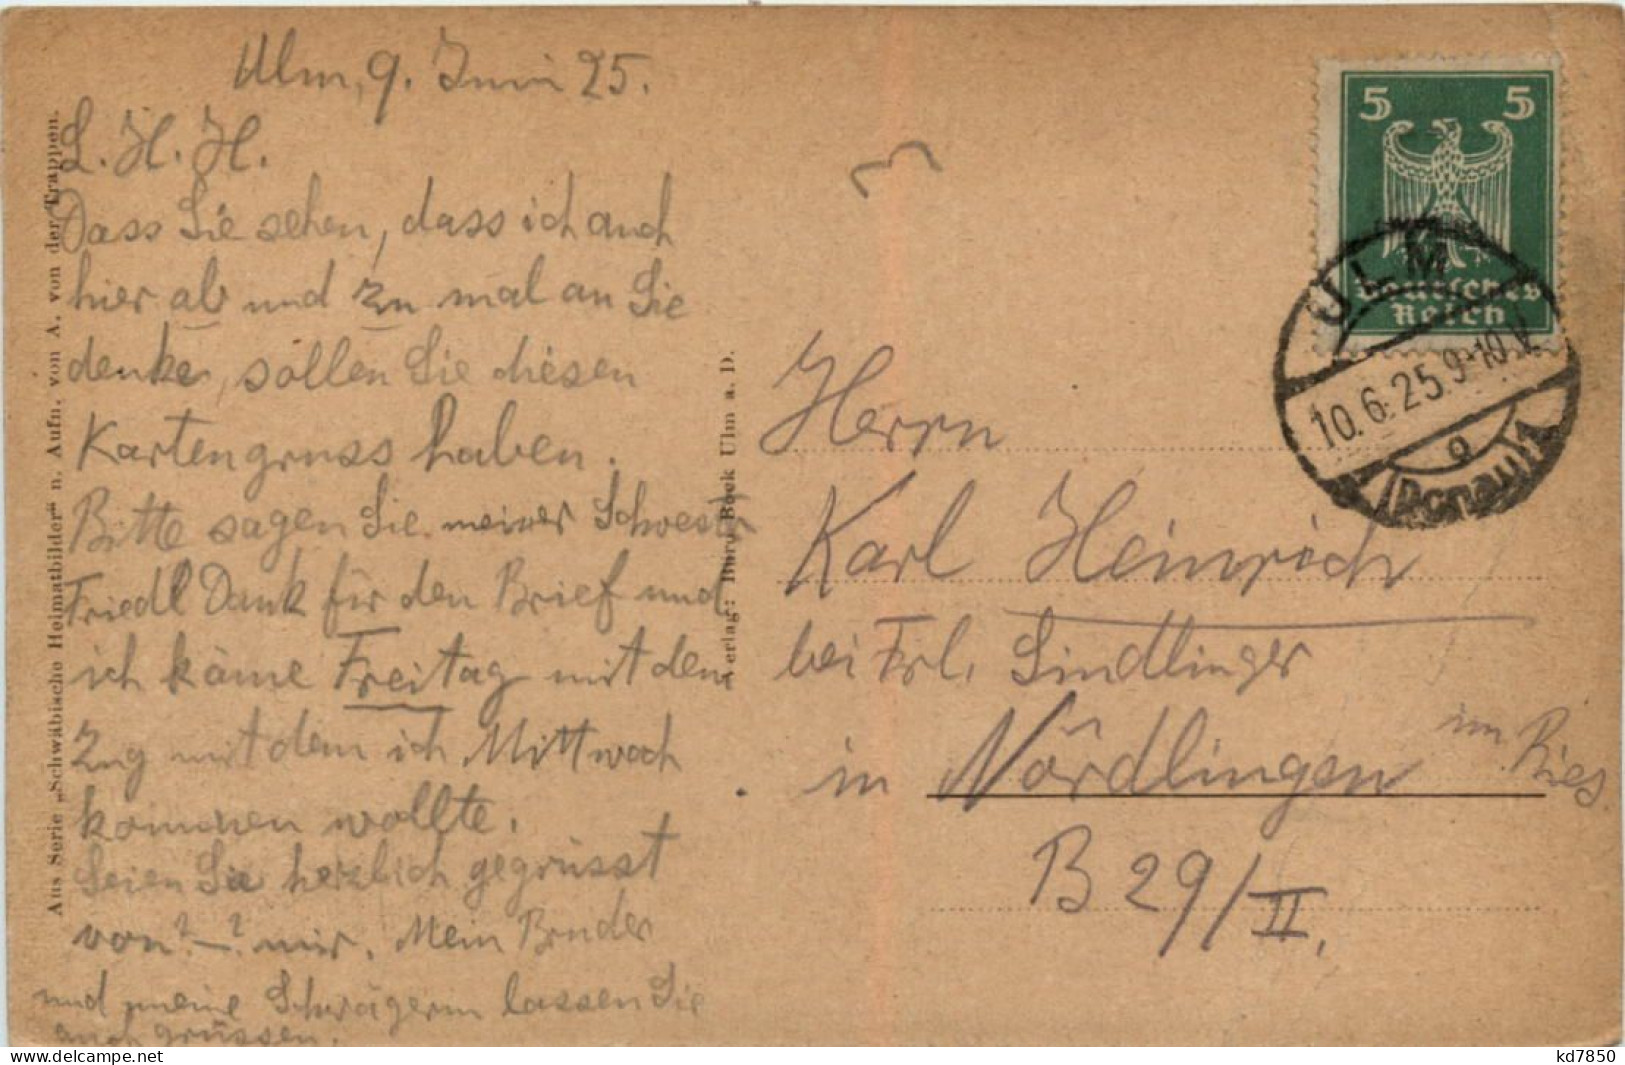 Ulm, 9. Juni 25.
L. H. H.
Dass Sie sehen, dass ich auch
hier ab und zu mal an Sie
denke, sollen Sie diesen
Kartengruss haben.
Bitte sagen Sie meiner Schwester
Friedl Dank für den Brief und
ich käme Freitag mit dem
Zug mit dem ich Mittwoch
kommen wollte.
Seien Sie herzlich gegrüsst
von? – ? mir. Mein Bruder
und meine Schwägerin lassen Sie
auch grüssen.
Aus Serie „Schwäbische Heimatbilder" n. Aufn. von A. von der Trappen.
Verlag: Burg-Bock Ulm a. D.
5 5
Deutsches
Reich
ULM
10.6.25.9-10V
(Donau) 1
Herrn
Karl Heinrich
bei Frl. Sindlinger
in Nördlingen im Ries.
B 29/II.
www.delcampe.net
kd7850